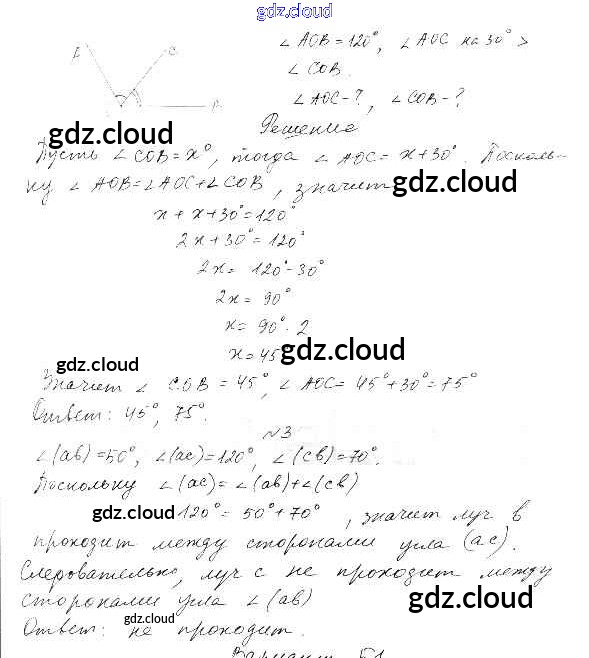 gdz.cloud
∠AOB = 120°, ∠AOC на 30° >
∠COB.
∠AOC - ?, ∠COB - ?
A C
B
Решение
gdz.cloud
Пусть ∠COB = x°, тогда ∠AOC = x + 30°. Посколь-
ку ∠AOB = ∠AOC + ∠COB, значит gdz.cloud
x + x + 30° = 120°
2x + 30° = 120°
2x = 120° - 30°
2x = 90°
x = 90° · 2
x = 45 gdz.cloud
gdz.cloud
Значит ∠COB = 45°, ∠AOC = 45° + 30° = 75°
Ответ: 45°, 75°.
N3
∠(ab) = 50°, ∠(ac) = 120°, ∠(cb) = 70°.
Поскольку ∠(ac) = ∠(ab) + ∠(cb)
gdz.cloud 120° = 50° + 70°, значит луч b
проходит между сторонами угла (ac).
Следовательно, луч c не проходит между
сторонами угла ∠(ab) gdz.cloud
gdz.cloud
Ответ: не проходит.
Вариант 51